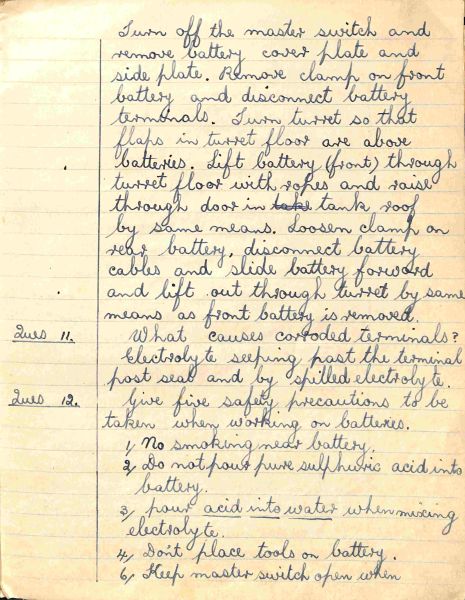 Turn off the master switch and
remove battery cover plate and
side plate. Remove clamp on front
battery and disconnect battery
terminals. Turn turret so that
flaps in turret floor are above
batteries. Lift battery (front) through
turret floor with ropes and raise
through door in take tank roof
by same means. Loosen clamp on
rear battery, disconnect battery
cables and slide battery forward
and lift out through turret by same
means as front battery is removed.
Ques 11. What causes corroded terminals?
Electrolyte seeping past the terminal
post seal and by spilled electrolyte.
Ques 12. Give five safety precautions to be
taken when working on batteries.
1, No smoking near battery.
2, Do not pour pure sulphuric acid into
battery.
3, pour acid into water when mixing
electrolyte.
4, Don't place tools on battery.
6, Keep master switch open when